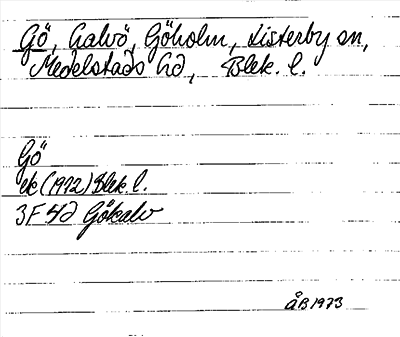 Gö, Halvö, Göholm, Listerby sn,
Medelstads hd, Blek. l.
Gö
ek (1972) Blek. l.
3F 4d Gökalv
ÅB 1973